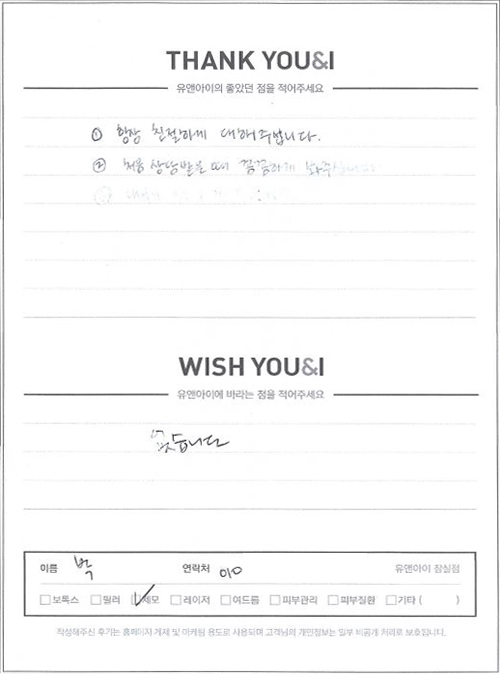 THANK YOU&I
유앤아이의 좋았던 점을 적어주세요
① 항상 친절하게 대해주십니다.
② 처음 상담받을 때 꼼꼼하게 봐주
WISH YOU&I
유앤아이에 바라는 점을 적어주세요
없습니다
이름 박 연락처 010 유앤아이 잠실점
보톡스 필러 제모 레이저 여드름 피부관리 피부질환 기타 ( )
작성해주신 후기는 홈페이지 게재 및 마케팅 용도로 사용되며 고객님의 개인정보는 일부 비공개 처리로 보호됩니다.